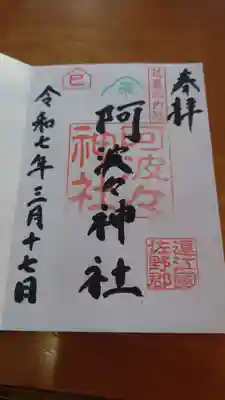 奉拝
阿波々神社
阿波々
神社
遠江國
佐野郡
巳
令和七年三月十七日